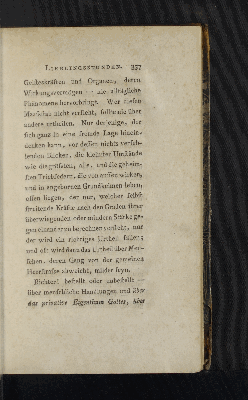 LIEBLINGSSTUNDEN. 357
Geisteskräften und Organen, deren
Wirkungsvermögen nie alltägliche
Phänomene hervorbringt. Wer diesen
Maasstab nicht versteht, sollte nie über
andere urtheilen. Nur derjenige, der
sich ganz in eine fremde Lage hinein-
denken kann, vor dessen nichts verseh-
lenden Blicken, die kleinsten Umstände
wie die größten, alle, und die geheim-
sten Triebfedern, die von aussen wirken,
und in angebornen Grundkeimen leben,
offen liegen, der nur, welcher selbst
streitende Kräfte nach den Graden ihrer
überwiegenden oder mindern Stärke ge-
gen einander zu berechnen versteht, nur
der wird ein richtiges Urtheil fällen;
und oft wird dann das Urtheil über Men-
schen, deren Gang von der gemeinen
Heerstrasse abweicht, milder seyn.
Richten! bestellt oder unbestellt —
über menschliche Handlungen und über
das privative Eigenthum Gottes, über